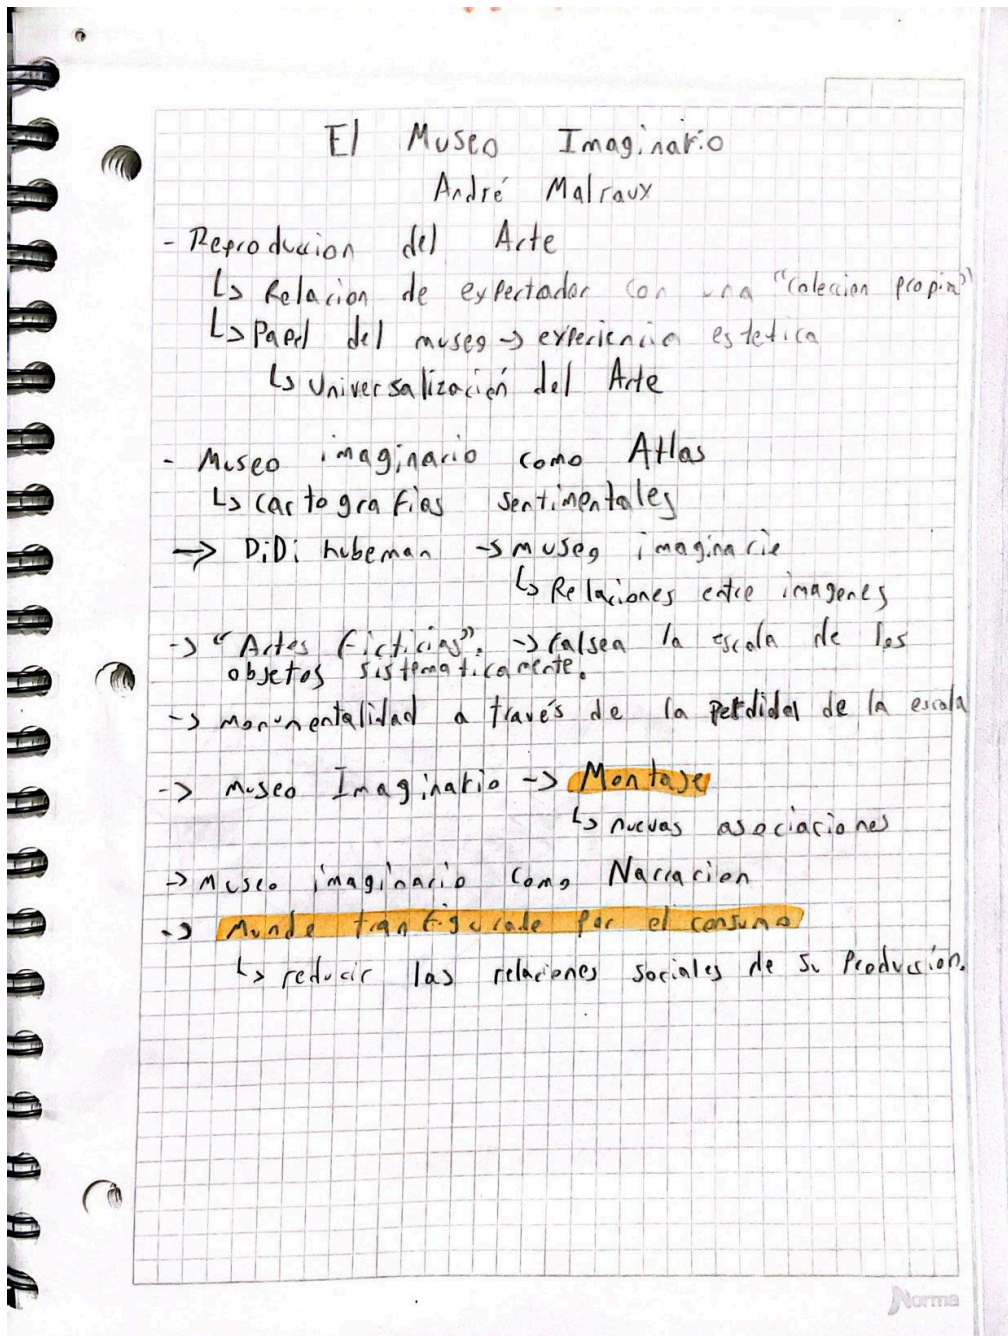 El Museo Imaginario
André Malraux
- Reproducion del Arte
↳ Relacion de expectador con una "coleccion propia"
↳ Papel del museo → experiencia estetica
↳ Universalización del Arte
- Museo imaginario como Atlas
↳ cartografias sentimentales
→ DiDi hubeman → museo imaginario
↳ Relaciones entre imagenes
→ "Artes ficticias". → falsea la escala de los
objetos sistematicamente.
→ monumentalidad a través de la perdida de la escala
→ museo Imaginario → Montaje
↳ nuevas asociaciones
→ museo imaginario como Narracion
→ Mundo tranfigurado por el consumo
↳ reducir las relaciones sociales de su Producsión.
Norma